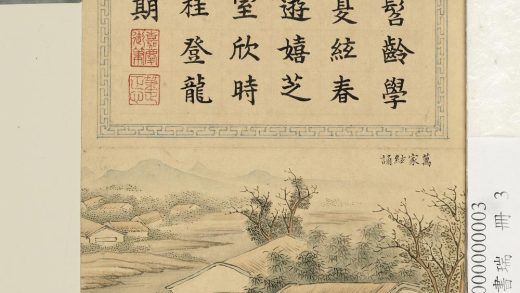 髫齡學
夏絃春
遊嬉芝
室欣時
桂登龍
期
萬家絃誦
書瑞 冊 3